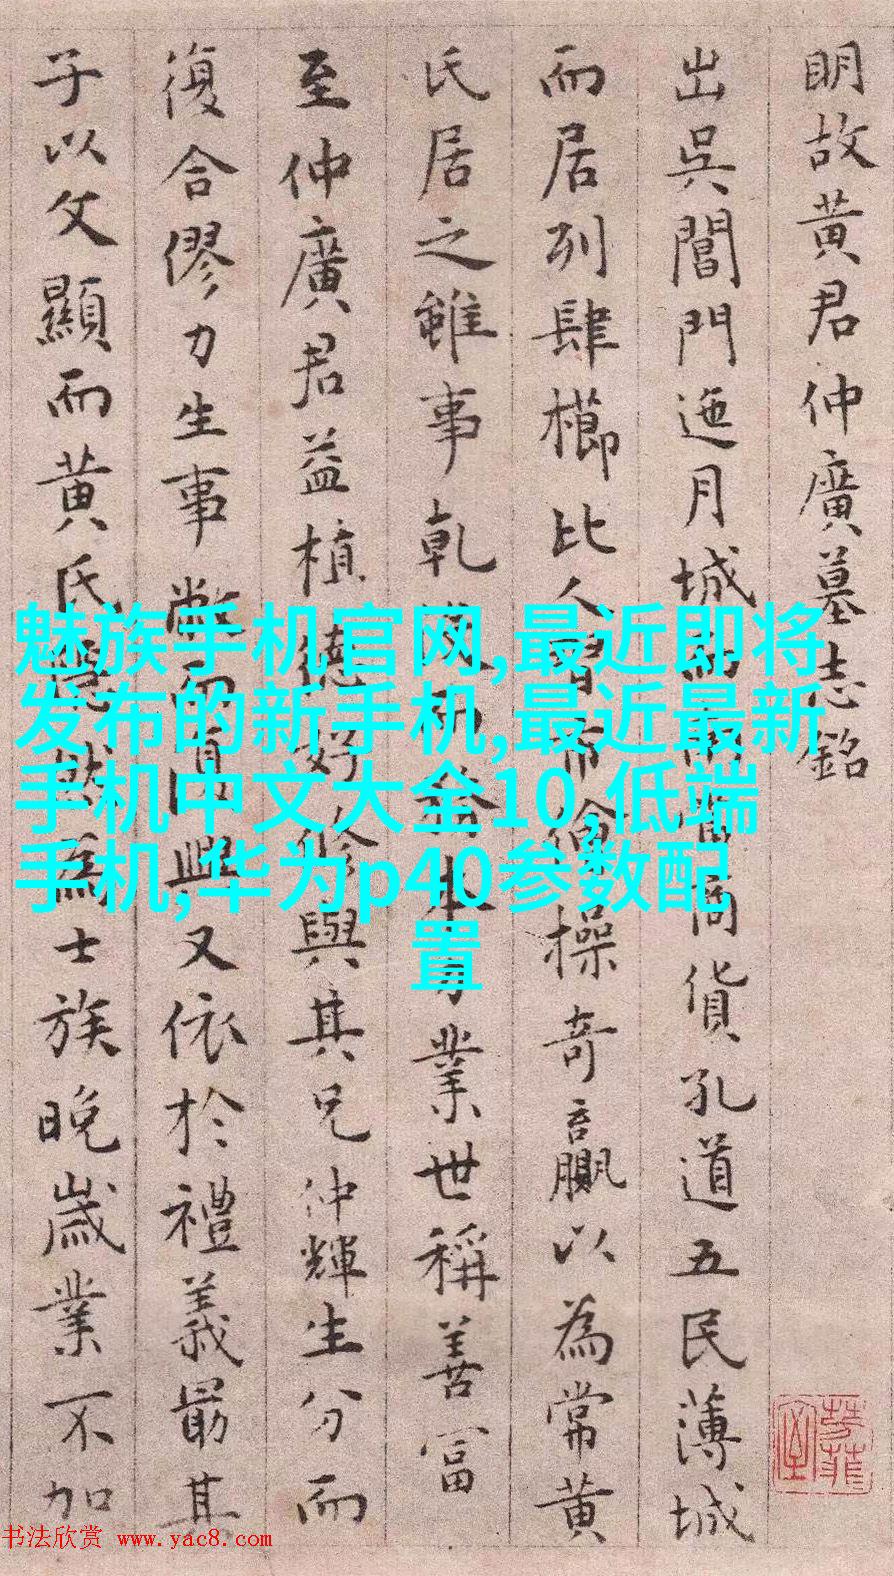 明故黄君仲廣墓志銘
出吳閶門迤月城而南當商貨孔道五民薄城
而居列肆櫛比人習市儈操奇贏以為常黄
氏居之雖事乾没而業世稱善富
至仲廣君益植德好修與其兄仲輝生分而
復合僇力生事敝而復興又依於禮義最其
子以文顯而黄氏然為士族晚歲業不加
魅族手机官网,最近即将
发布的新手机,最近最新
手机中文大全10,低端
手机,华为p40参数配
置
书法欣赏 www.yac8.com